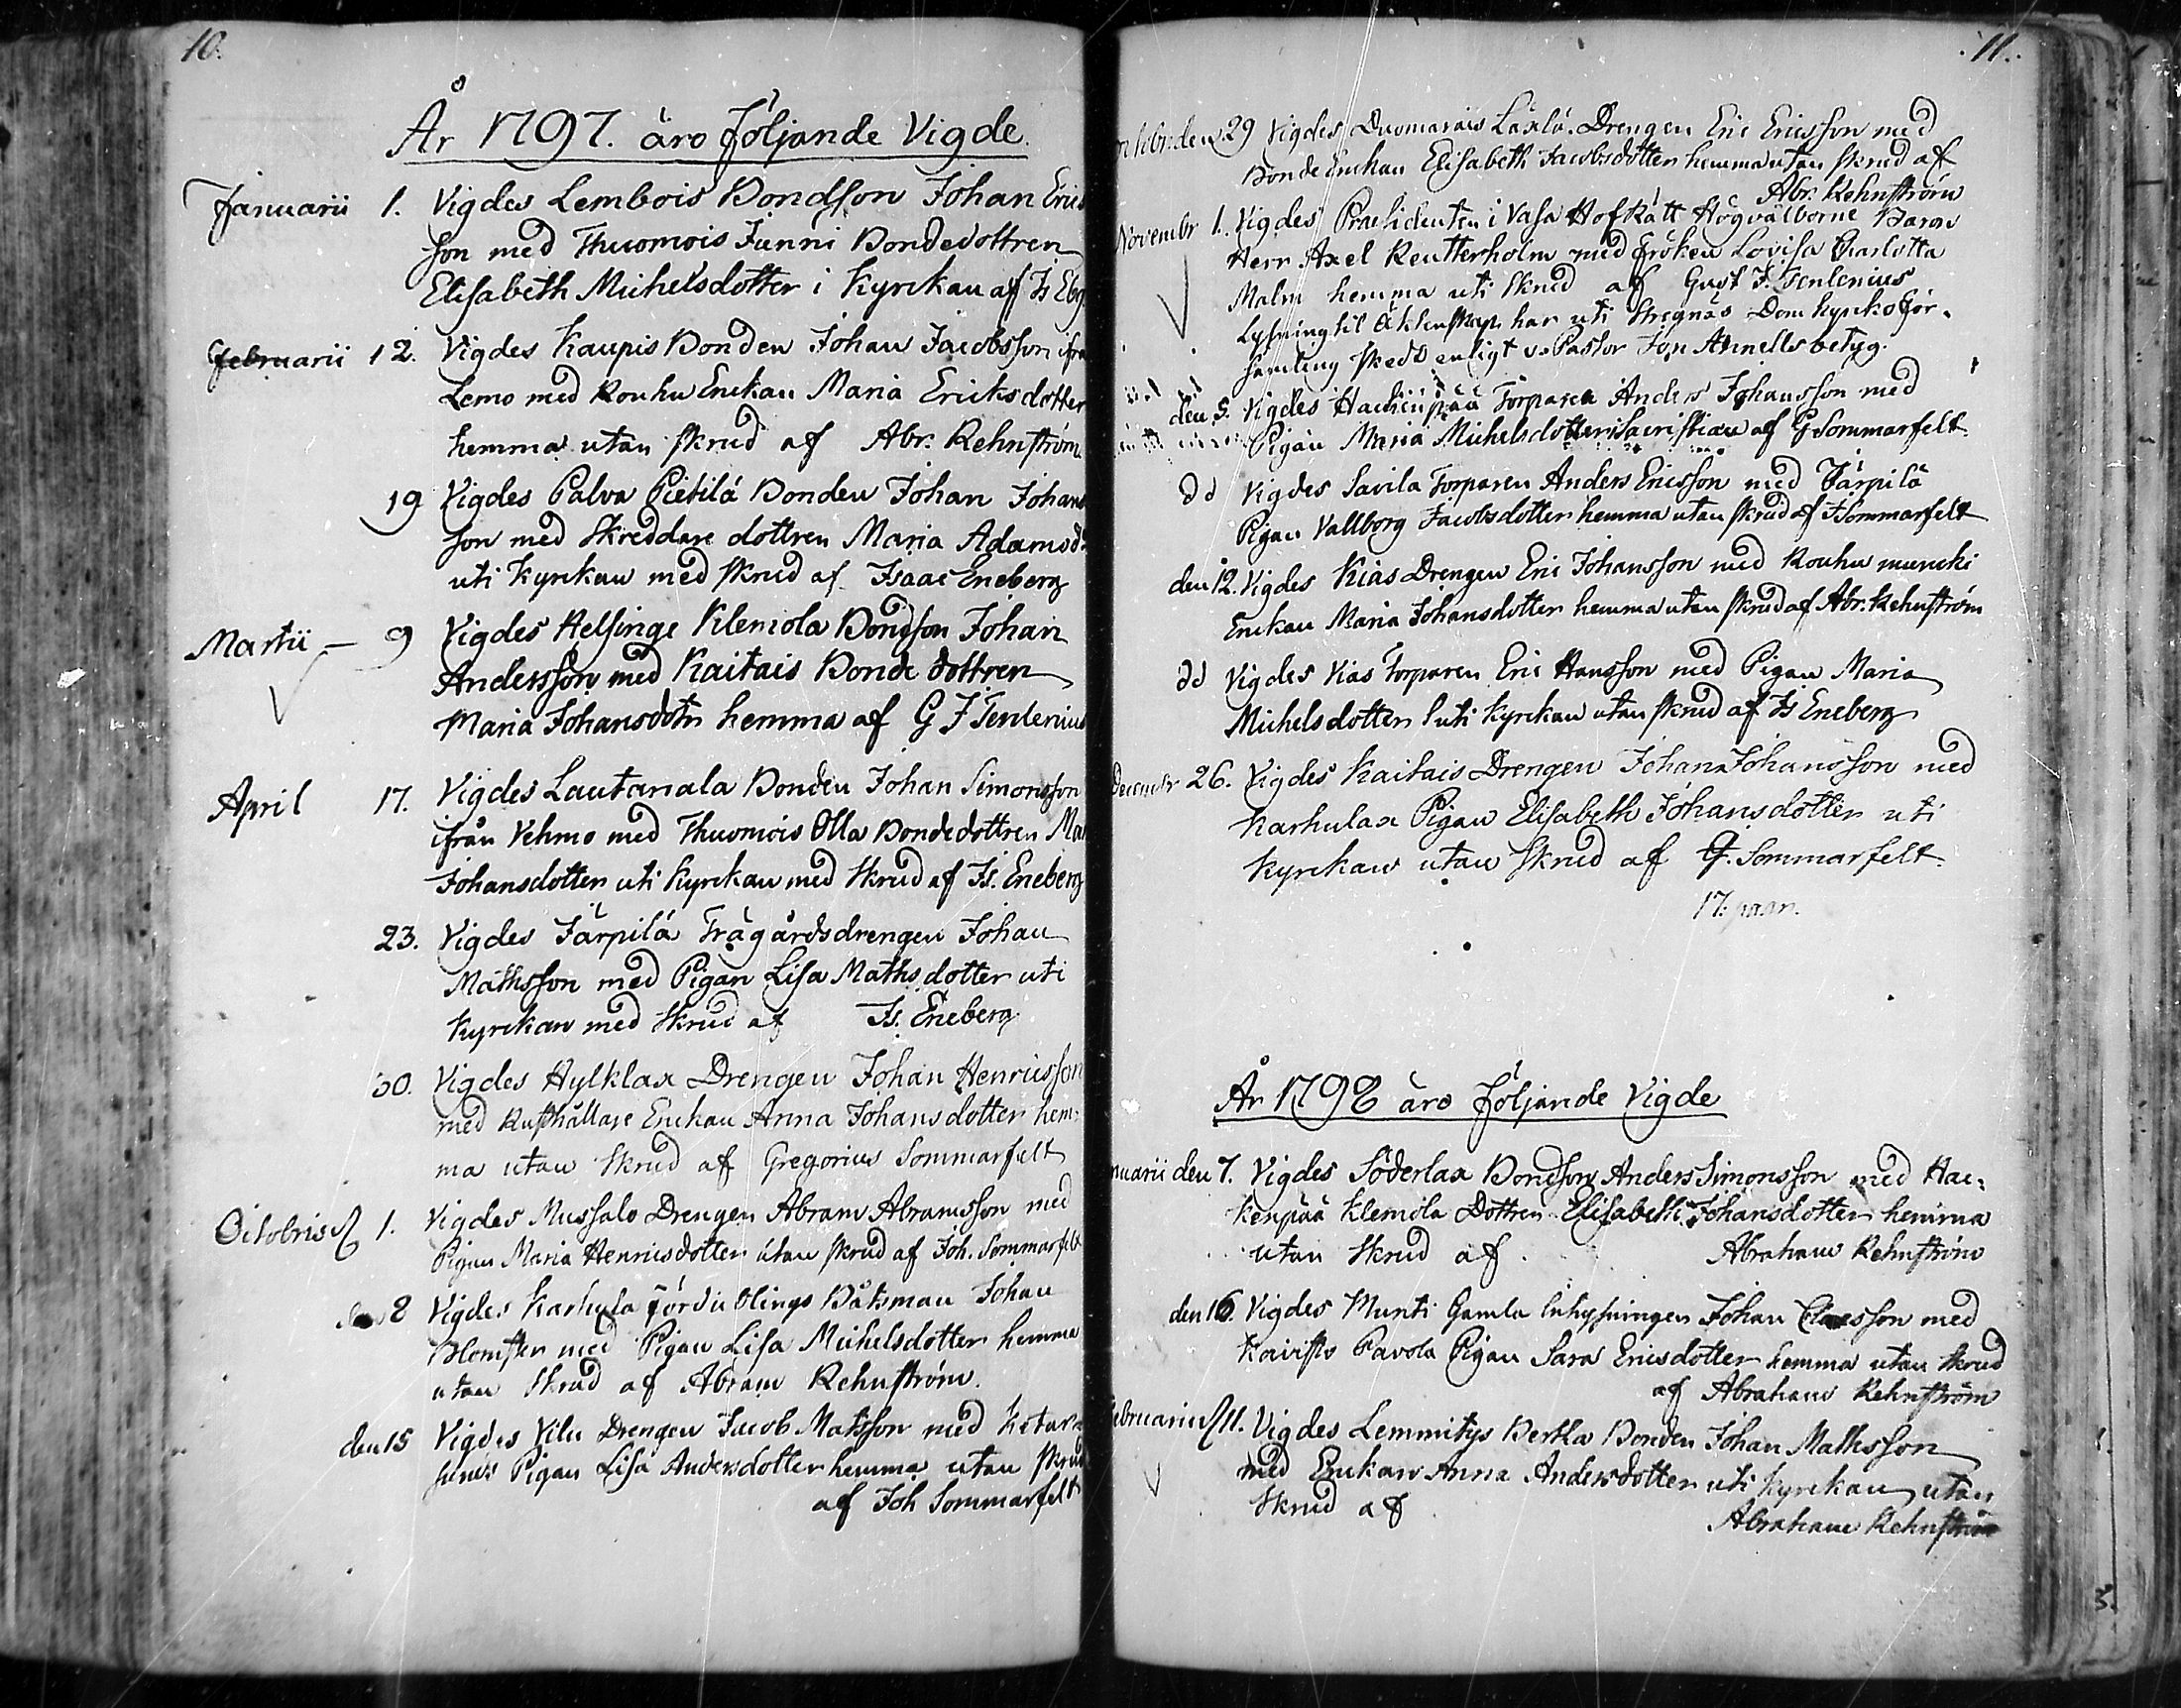 10.
År 1797. äro följande Vigde.
Januarii 1. Vigdes Lembois Bondson Johan Erics
son med Thuomois Junni Bondedottren
Elisabeth Michelsdotter i Kyrckan af Is Ebg
Februarii 12. Vigdes Kaupis Bonden Johan Jacobsson ifrå
Lemo med Rouhu Enckan Maria Ericksdotter
hemma utan skrud af Abr. Rehnström
19 Vigdes Palva Pietilä Bonden Johan Johans
son med Skreddare dottren Maria Adamsd:
uti Kyrckan med skrud af Isaac Eneberg
Martii — 9 Vigdes Helsinge Klemola Bondson Johan
Andersson med Kaitais Bonde dottren
Maria Johansdotn hemma af G J Tenlenius
April 17. Vigdes Lautanala Bonden Johan Simonsson
ifrån Vehmo med Thuomois Olla Bondedottren Ma
Johansdotter uti Kyrckan med Skrud af Is. Eneberg
23. Vigdes Järpilä Trägårdsdrengen Johan
Mathsson med Pigan Lisa Mathsdotter uti
Kyrckan med Skrud af Is. Eneberg
30. Vigdes Hylklax Drengen Johan Henricsson
med Rusthållare Enckan Anna Johansdotter hem:
ma utan Skrud af Gregorius Sommarfelt
Octobris d 1. Vigdes Mussalo Drengen Abram Abramsson med
Pigan Maria Henricsdotter utan skrud af Joh. Sommarfelt
den 8 Vigdes Karhula Fördublings Båtsman Johan
Blomster med Pigan Lisa Michelsdotter hemma
utan Skrud af Abram Rehnström.
den 15 Vigdes Vilu Drengen Jacob Matsson med
Pigan Lisa Andersdotter hemma utan skrud
af Joh Sommarfelt
11.
Octobr: den 29 Vigdes Duomarais Laxlä Drengen Eric Ericsson med
Bonde Enckan Elisabeth Jacobsdotter hemma utan skrud af
Abr. Rehnström
Novembr 1. Vigdes Præsidenten i Vasa HofRätt Högvälborne Baron
Herr Axel Reutterholm med Fröken Lovisa Charlotta
Malm hemma uti Skrud af Gust J. Tenlenius
Lysning til Äktenskap har uti Stregnäs Domkyrkoför-
samling skedt enligt v. Pastor Jon Arnells betyg.
den 5. Vigdes Hackenpää Torparen Anders Johansson med
Pigan Maria Michelsdotter i Sacristian af G Sommarfelt.
dd Vigdes Savila Torparen Anders Ericsson med Järpilä
Pigan Vallborg Jacobsdotter hemma utan skrud af J Sommarfelt
den 12. Vigdes Kias Drengen Eric Johansson med Rouhu muncki
Enckan Maria Johansdotter hemma utan skrud af Abr. Rehnström
dd Vigdes Kias Torparen Eric Hansson med Pigan Maria
Michelsdotter uti Kyrckan utan skrud af Is Eneberg
Decembr 26. Vigdes Kaitais Drengen Johan Johansson med
Karhulax Pigan Elisabeth Johansdotter uti
Kyrckan utan Skrud af G. Sommarfelt.
17. paar.
År 1798 äro följande Vigde
Januarii den 7. Vigdes Söderlax Bondson Anders Simonsson med Hac:
kenpää Klemola Dottren Elisabeth Johansdotter hemma
utan Skrud af Abraham Rehnström
den 16. Vigdes Munti Gamla Inhysningen Johan Claesson med
Koivisto Pavola Pigan Sara Ericsdotter hemma utan skrud
af Abraham Rehnström
Februarii d 11. Vigdes Lemmitys Bertla Bonden Johan Mathsson
med Enckan Anna Andersdotter uti Kyrckan utan
Skrud af Abraham Rehnström